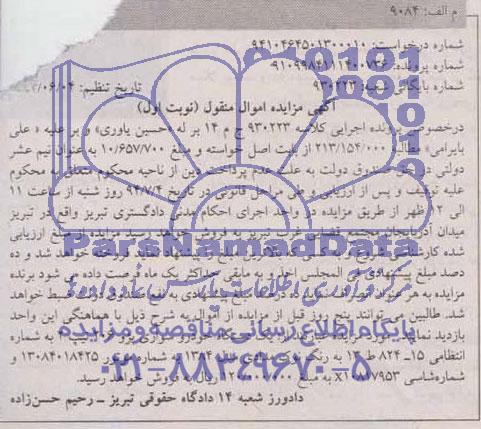 م الف: ۹۰۸۴
شماره درخواست: ۹۴۱۰۴۶۴۵۰۱۳۰۰۰۱۰
شماره پرونده: ۹۱۰۹۹۸۴۱۱۲۴۰۰۷۳۶
شماره بایگانی شعبه: ۹۳۰۲۲۳ تاریخ تنظیم: /۰۶/۰۴
آگهی مزایده اموال منقول (نوبت اول)
درخصوص پرونده اجرایی کلاسه ۹۳۰۲۲۳ ج م ۱۴ بر له «حسین یاوری» و بر علیه « علی
بایرامی» مبلغ ۲۱۳/۱۵۴/۰۰۰ از بابت اصل خواسته و مبلغ ۱۰/۶۵۷/۷۰۰ به عنوان نیم عشر
دولتی در حق صندوق دولت به علت عدم پرداخت دین از ناحیه محکوم متعلق به محکوم
علیه توقیف و پس از ارزیابی و طی مراحل قانونی در تاریخ ۹۴/۷/۴ روز شنبه از ساعت ۱۱
الی ۱۲ ظهر از طریق مزایده در واحد اجرای احکام مدنی دادگستری تبریز واقع در تبریز
میدان آذربایجان مجتمع قضایی غرب تبریز به فروش خواهد رسید مزایده از مبلغ ارزیابی
شده کارشناسی شروع و به کسی که بالاترین مبلغ را پیشنهاد نماید فروخته خواهد شد و ده
درصد مبلغ پیشنهادی فی المجلس اخذ و به مابقی حداکثر یک ماه فرصت داده می شود برنده
مزایده به هر عنوان منصرف ده درصد مبلغ پیشنهادی به نفع صندوق دولت ضبط خواهد
شد. طالبین می توانند پنج روز قبل از مزایده از اموال به شرح ذیل با هماهنگی این واحد
بازدید نمایند مورد مزایده عبارتند از: یک دستگاه خودرو سواری پژو به شماره
انتظامی ۱۵- ۸۲۴ ط ۱۷ به رنگ مدل ۱۳۸۴ به شماره موتور ۱۳۰۸۴۰۱۸۴۲۵ و
شماره‌شاسی X۱۰۸۱۷۹۵۳ به مبلغ ریال به فروش خواهد رسید.
دادورز شعبه ۱۴ دادگاه حقوقی تبریز ـ رحیم حسن‌زاده
ParsNamadData
مرکز فرآوری اطلاعات پارس نماد داده ها
پایگاه اطلاع رسانی مناقصه و مزایده
۰۲۱-۸۸۳۴۹۶۷۰-۵